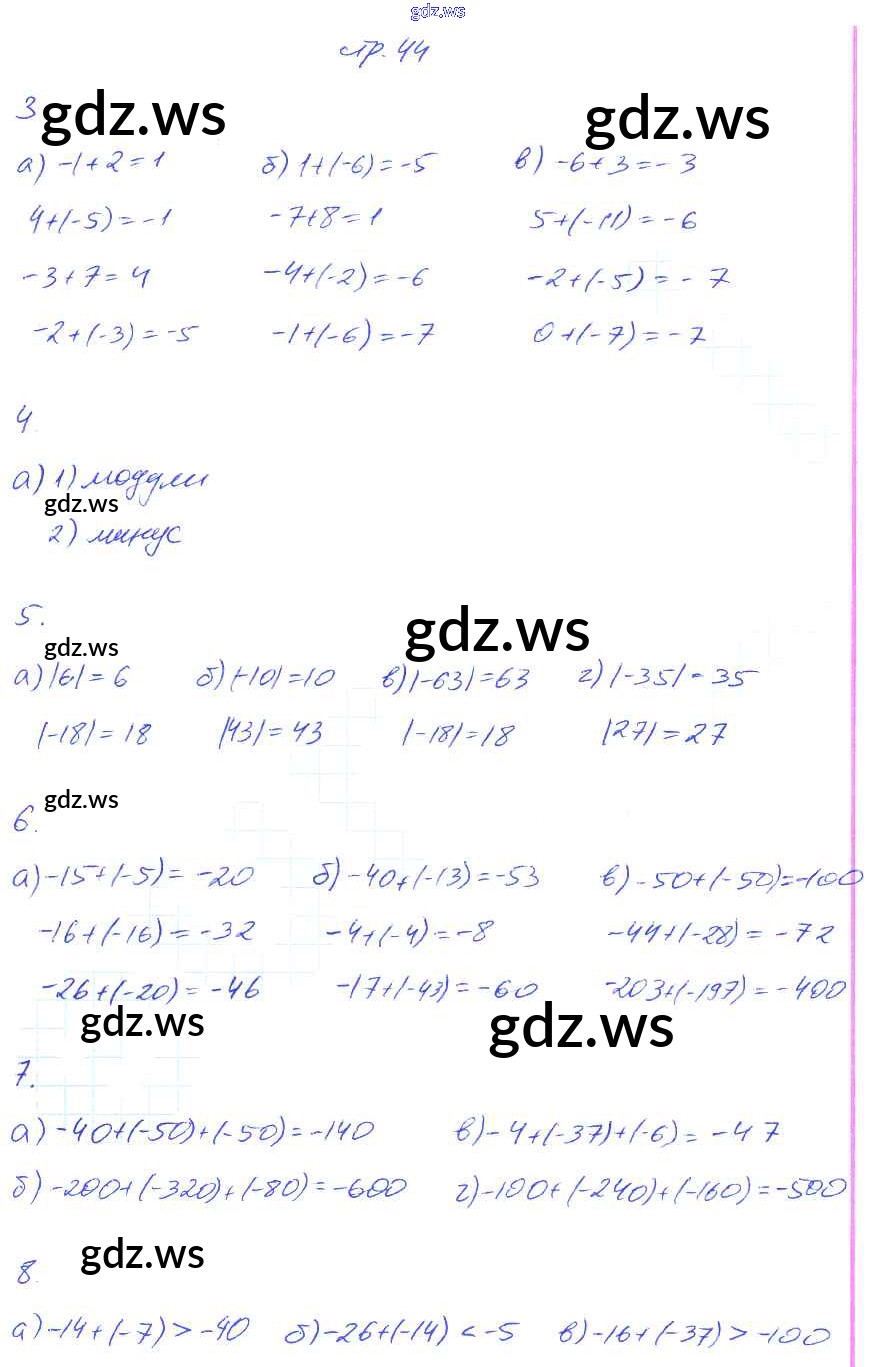 gdz.ws
стр. 44
3 gdz.ws gdz.ws
а) -1+2=1 б) 1+(-6)=-5 в) -6+3=-3
4+(-5)=-1 -7+8=1 5+(-11)=-6
-3+7=4 -4+(-2)=-6 -2+(-5)=-7
-2+(-3)=-5 -1+(-6)=-7 0+(-7)=-7
4.
а) 1) модули
gdz.ws
2) минус
5. gdz.ws
gdz.ws
а) |6|=6 б) |-10|=10 в) |-63|=63 г) |-35|=35
|-18|=18 |43|=43 |-18|=18 |27|=27
gdz.ws
6.
а) -15+(-5)=-20 б) -40+(-13)=-53 в) -50+(-50)=-100
-16+(-16)=-32 -4+(-4)=-8 -44+(-28)=-72
-26+(-20)=-46 -17+(-43)=-60 -203+(-197)=-400
gdz.ws gdz.ws
7.
а) -40+(-50)+(-50)=-140 в) -4+(-37)+(-6)=-47
б) -200+(-320)+(-80)=-600 г) -100+(-240)+(-160)=-500
gdz.ws
8.
а) -14+(-7)>-40 б) -26+(-14)<-5 в) -16+(-37)>-100